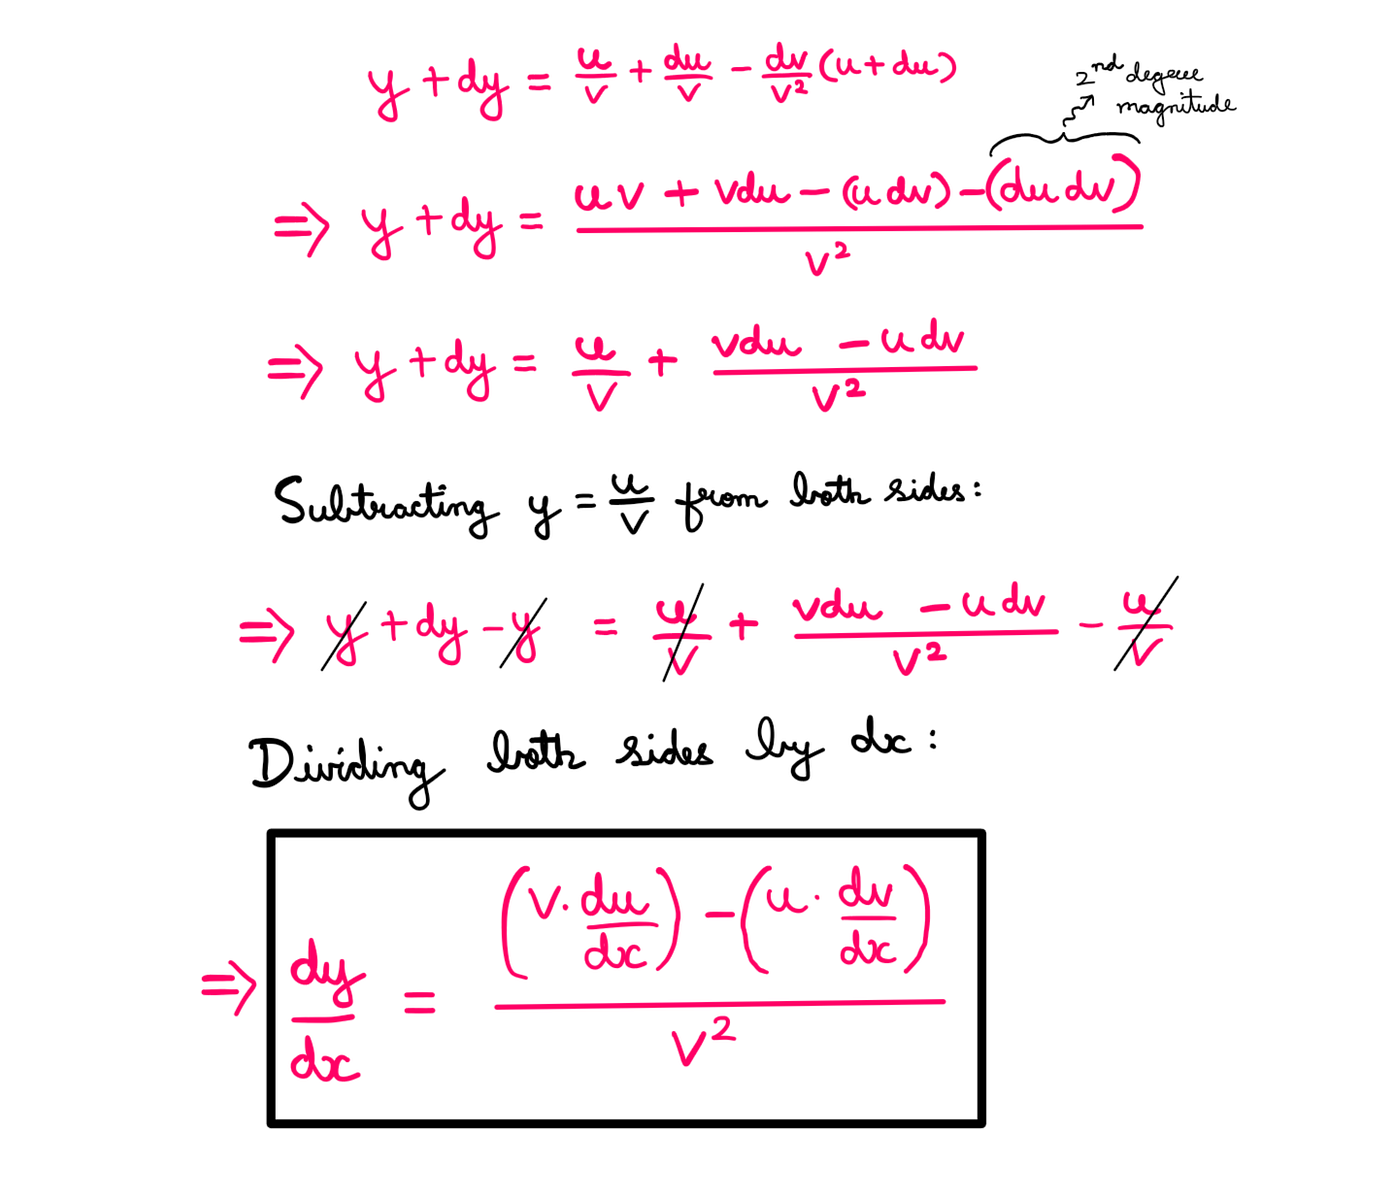 y + dy = u/v + du/v - dv/v² (u + du)
2nd degree
magnitude
⇒ y + dy = (uv + vdu - (u dv) - (du dv))/v²
⇒ y + dy = u/v + (vdu - u dv)/v²
Subtracting y = u/v from both sides:
⇒ y + dy - y = u/v + (vdu - u dv)/v² - u/v
Dividing both sides by dx:
⇒ dy/dx = ((v · du/dx) - (u · dv/dx))/v²